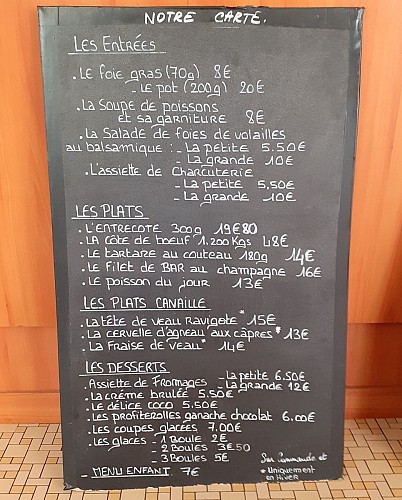 NOTRE CARTE.
LES ENTRÉES
. LE foie gras (70g) 8€
- LE pot (200g) 20€
. LA Soupe de poissons
et sa garniture 8€
. LA Salade de foies de volailles
au balsamique : - LA petite 5.50€
- LA grande 10€
. L'assiette de Charcuterie
- LA petite 5,50€
- LA grande 10€
LES PLATS
. L'ENTRECOTE 300g 19€80
. LA côte de boeuf 1.200Kgs 48€
. LE tartare au couteau 180g 14€
. LE filet de BAR au champagne 16€
. LE poisson du jour 13€
LES PLATS CANAILLE
. LA tête de veau Ravigote * 15€
. LA cervelle d'agneau aux câpres * 13€
. LA Fraise de veau * 14€
LES DESSERTS
. Assiette de fromages - La petite 6.50€
- La grande 12€
. LA crème brulée 5.50€
. LE délice coco 5.50€
. Les profiterolles ganache chocolat 6.00€
. Les coupes glacées 7.00€
. Les glaces - 1 Boule 2€
- 2 Boules 3€50
- 3 Boules 5€
- MENU ENFANT 7€
Sur Commande et
* Uniquement
en Hiver